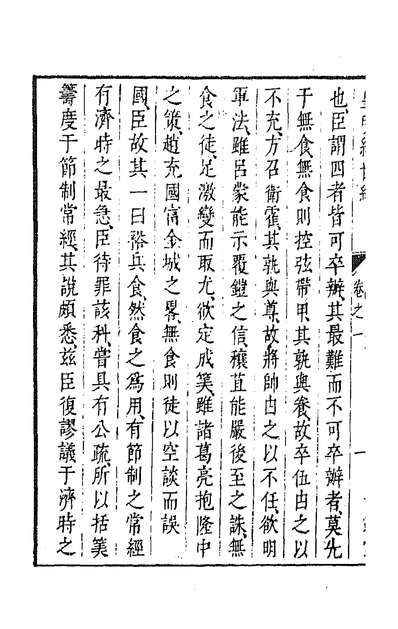 也臣謂四者皆可卒辦其最難而不可卒辦者莫先
于無食無食則控弦帶甲其孰與養故卒伍由之以
不充方召衛霍其孰與尊故將帥由之以不任欲明
軍法雖呂蒙能示覆鎧之信穰苴能嚴後至之誅無
食之徒足激變而取尤欲定成筭雖諸葛亮抱隆中
之策趙充國富金城之畧無食則徒以空談而誤
國臣故其一曰裕兵食然食之為用有節制之常經
有濟時之最急臣待罪該科嘗具有公疏所以括筭
籌度于節制常經其說頗悉茲臣復謬議于濟時之
卷之一